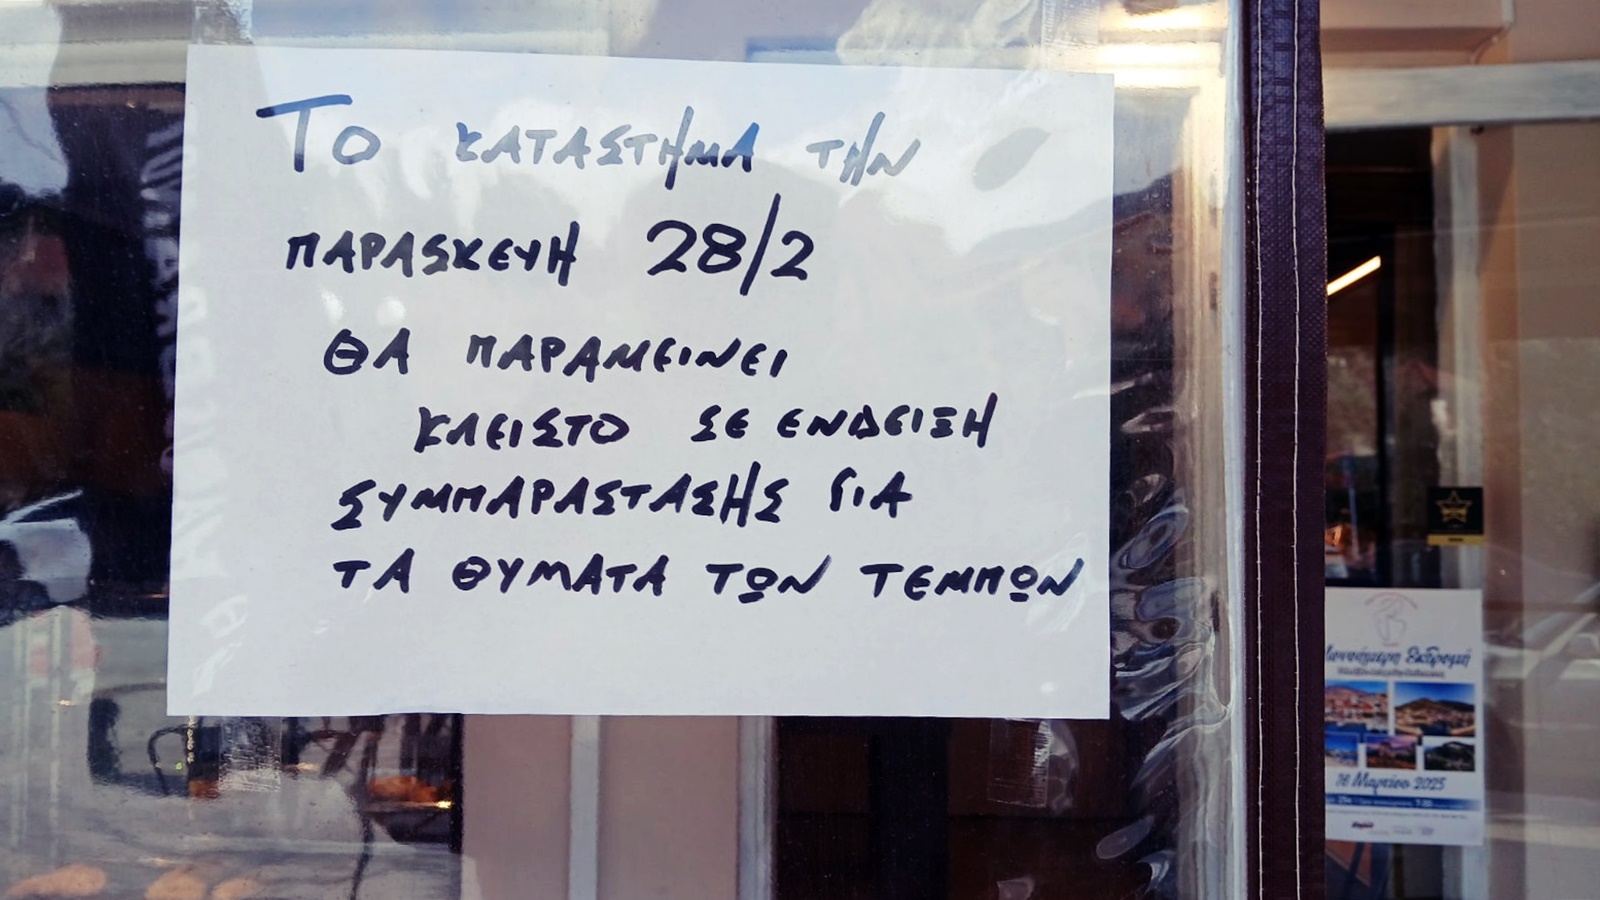 Το ΚΑΤΑΣΤΗΜΑ ΤΗΝ
ΠΑΡΑΣΚΕΥΗ 28/2
ΘΑ ΠΑΡΑΜΕΙΝΕΙ
ΚΛΕΙΣΤΟ ΣΕ ΕΝΔΕΙΞΗ
ΣΥΜΠΑΡΑΣΤΑΣΗΣ ΓΙΑ
ΤΑ ΘΥΜΑΤΑ ΤΩΝ ΤΕΜΠΩΝ
Εκδρομή
16 Μαρτίου 2025